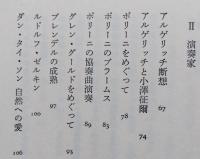 II 演奏家
アルゲリッチ断想 67
アルゲリッチと小澤征爾 74
ポリーニをめぐって 78
ポリーニのブラームス 83
ポリーニの協奏曲演奏 89
グレン・グールドをめぐって 93
ブレンデルの成熟 97
ルドルフ・ゼルキン 100
ダン・タイ・ソン 自然への愛 106